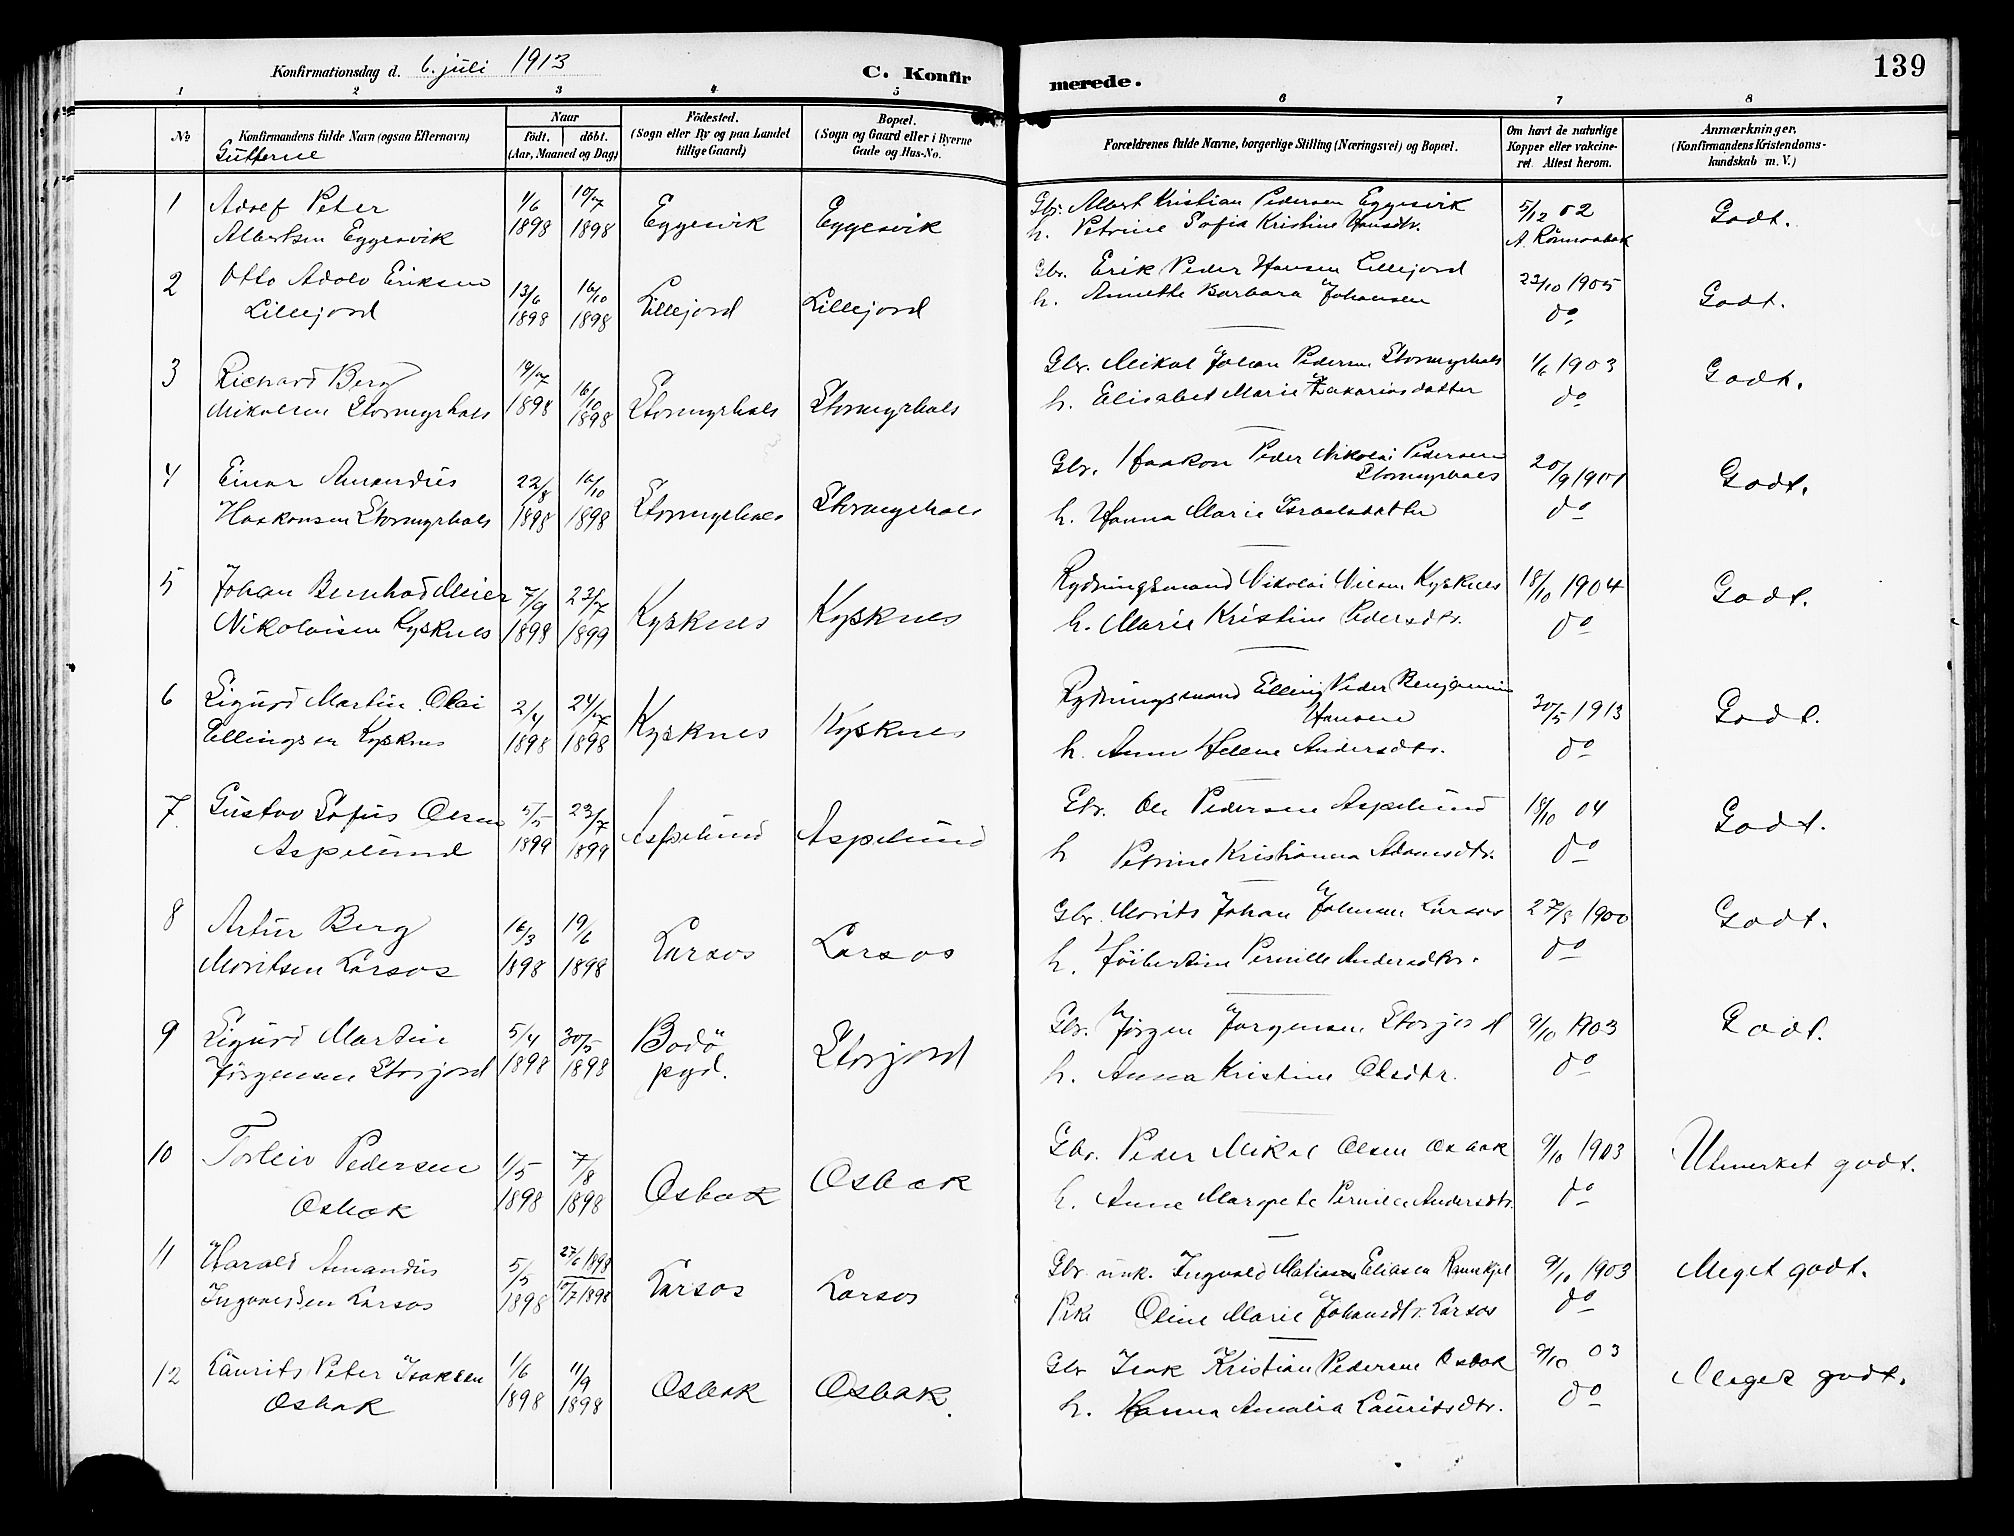 Konfirmationsdag d. 6. juli 1913
C. Konfirmerede.
139
1 2 3 4 5 6 7 8
No
Konfirmandens fulde Navn (ogsaa Efternavn)
Gutterne
Naar
födt. döbt.
(Aar, Maaned og Dag)
Födested.
(Sogn eller By og paa Landet
tillige Gaard)
Bopæl.
(Sogn og Gaard eller i Byerne
Gade og Hus-No.
Forældrenes fulde Navne, borgerlige Stilling (Næringsvei) og Bopæl.
Om havt de naturlige
Kopper eller vakcine-
ret. Attest herom.
Anmærkninger.
(Konfirmandens Kristendoms-
kundskab m. V.)
1 Adolf Peter 1/6 10/7 Eggesvik Eggesvik Gbr. Albert Kristian Pedersen Eggesvik 5/12 02 Godt.
Albertsen Eggesvik 1898 1898 h. Petrine Sofia Kristine Hansdtr. A. Rönnaabak
2 Otto Adolv Eriksen 13/6 16/10 Lillejord Lillejord Gbr. Erik Peder Hansen Lillejord 23/10 1905 Godt.
Lillejord 1898 1898 h. Annette Barbara Johansen do
3 Richard Berg 19/7 16/10 Stormyrhals Stormyrhals Gbr. Mikal Johan Pedersen Stormyrhals 1/6 1903 Godt.
Mikalsen Stormyrhals 1898 1898 h. Elisabet Marie Zakariasdatter do
4 Einar Amandus 22/8 16/10 Stormyrhals Stormyrhals Gbr. Haakon Peder Nikolai Pedersen
Stormyrhals 20/9 1901 Godt.
Haakonsen Stormyrhals 1898 1898 h. Hanna Marie Israelsdatter do
5 Johan Bernhard Meier 7/9 23/7 Kysknes Kysknes Rydningsmand Nikolai Nilsen Kysknes 18/10 1904 Godt.
Nikolaisen Kysknes 1898 1899 h. Marie Kristine Pedersdtr. do
6 Sigurd Martin Olai 2/4 24/7 Kysknes Kysknes Rydningsmand Elling Peder Benjamin
Hansen 30/5 1913 Godt.
Ellingsen Kysknes 1898 1898 h. Anna Helene Andersdtr. do
7. Gustav Sofus Olsen 5/5 23/7 Aspelund Aspelund Gbr. Ole Pedersen Aspelund 18/10 04 Godt.
Aspelund 1899 1899 h Petrine Kristianna Adamsdtr. do
8 Artur Berg 16/3 19/6 Larsos Larsos Gbr. Morits Johan Johansen Larsos 27/8 1900 Godt.
Moritsen Larsos 1898 1898 h. Pernille Andersdtr. do
9 Sigurd Martin 5/4 30/5 Bodö Storjord Gbr. Jörgen Jörgensen Storjord 9/10 1903 Godt.
Jörgensen Storjord 1898 1898 pgd. h. Anna Kristine Olsdtr. do
10 Torleiv Pedersen 1/5 7/8 Osbak Osbak Gbr. Peder Mikal Olsen Osbak 9/10 1903 Utmerket godt.
Osbak 1898 1898 h. Anne Margrete Pernille Andersdtr. do
11 Harald Amandus 5/5 27/6 1898 Larsos Larsos Gbr. unk. Ingvald Matias Eliasen 9/10 1903 Meget godt.
Ingvaldsen Larsos 1898 10/7 1898 Pike Oline Marie Johansdtr. Larsos do
12 Laurits Peter Isaksen 1/6 11/9 Osbak Osbak. Gbr Isak Kristian Pedersen Osbak 9/10 03 Meget godt.
Osbak 1898 1898 h. Hanna Amalia Lauritsdtr. do